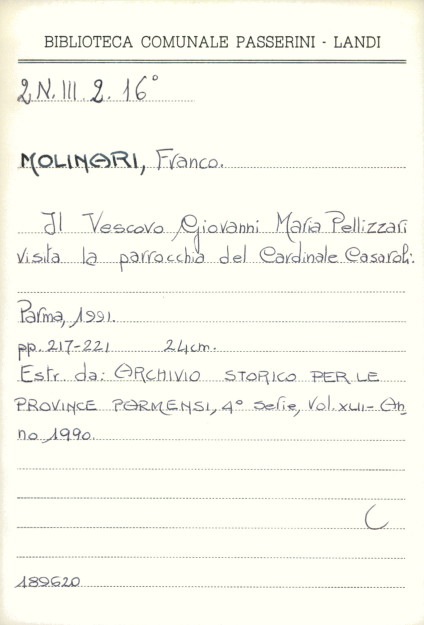 BIBLIOTECA COMUNALE PASSERINI · LANDI
2N.III.2.16°
MOLINARI, Franco.
Il Vescovo Giovanni Maria Pellizzari
visita la parrocchia del Cardinale Casaroli.
Parma, 1991.
pp. 217-221 24cm.
Estr. da: ARCHIVIO STORICO PER LE
PROVINCE PARMENSI, 4° serie, Vol. XLII - An
no 1990.
C
189620